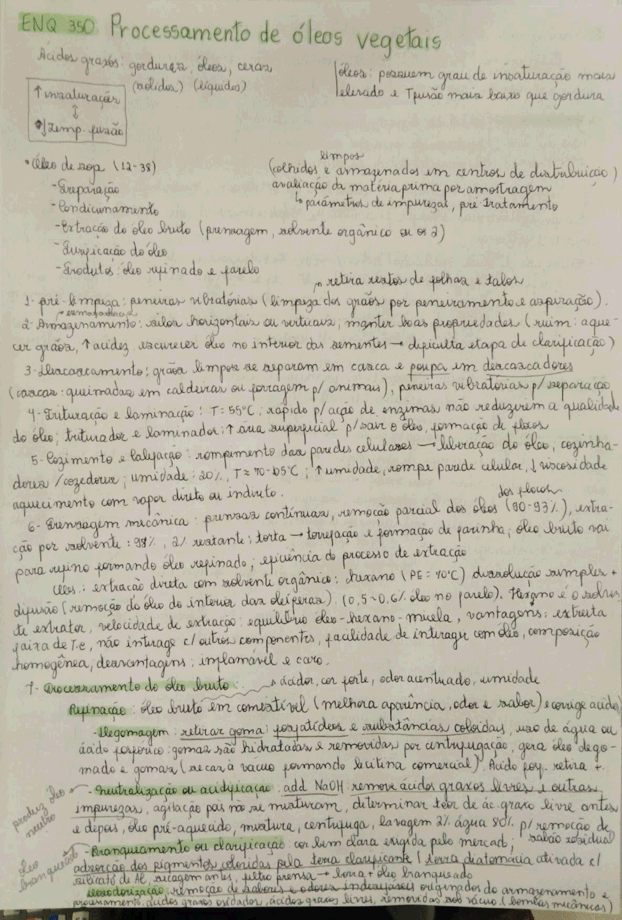 ENQ 350 Processamento de óleos vegetais
Ácidos graxos: gorduras, óleos, ceras
(sólidos) (líquidos)
óleos: possuem grau de insaturação mais
elevado e Tfusão mais baixo que gordura
↑ insaturações
↕
↓ Temp. fusão
• Óleo de soja (12-38)
- Preparação
- Condicionamento
- Extração do óleo bruto (prensagem, solvente orgânico ou os 2)
- Purificação do óleo
- Produtos: óleo refinado e farelo
limpos
(colhidos e armazenados em centros de distribuição)
avaliação da matéria prima por amostragem
↳ parâmetros de impurezas, pré tratamento
retira restos de folhas e talos
1- pré-limpeza: peneiras vibratórias (limpeza dos grãos por peneiramento e aspiração).
2- Armazenamento: silos horizontais ou verticais; manter boas propriedades (ruim: aque-
cer grãos, ↑ acidez, escurecer óleo no interior das sementes → dificulta etapa de clarificação)
3- descascamento: grãos limpos se separam em casca e poupa em descascadores
(cascas: queimadas em caldeiras ou forragem p/ animais), peneiras vibratórias p/ separação
4- Trituração e laminação: T = 55°C; rápido p/ ação de enzimas não reduzirem a qualidade
do óleo; triturador e laminador: ↑ área superficial p/ sair o óleo, formação de flocos
5- Cozimento e : rompimento das paredes celulares → liberação do óleo, cozinha-
dores /cozedores; umidade: 20%, T = 70-105°C; ↑ umidade, rompe parede celular, ↓ viscosidade
aquecimento com vapor direto ou indireto.
dos flocos
6- Prensagem mecânica: prensas contínuas, remoção parcial dos óleos (90-93%), extra-
ção por solvente: 98%, 2% restante: torta → torrefação e formação de farinha; óleo bruto vai
para refino formando óleo refinado; eficiência do processo de extração
: extração direta com solvente orgânico: hexano (PE = 70°C) dissolução simples +
difusão (remoção do óleo do interior das oleíferas). (0,5-0,6% óleo no farelo). Hexano é o solven-
te extrator, velocidade de extração: equilíbrio óleo-hexano-miscela, vantagens: estreita
faixa de T.e, não interage c/ outros componentes, facilidade de interagir com óleo, composição
homogênea, desvantagens: inflamável e caro.
7- Processamento do óleo bruto: → ácidos, cor forte, odor acentuado, umidade
Refinação: óleo bruto em comestível (melhora aparência, odor e sabor) e corrige acidez
- Degomagem: retirar goma: fosfatídeos e substâncias coloidais, uso de água ou
ácido fosfórico: gomas são hidratadas e removidas por centrifugação, gera óleo dego-
mado e gomas (secar à vácuo formando lecitina comercial). Ácido fosf. retira +.
produz óleo
neutro
- Neutralização ou acidificação: add NaOH: remove ácidos graxos livres e outras
impurezas, agitação pois não se misturam, determinar teor de ác. graxo livre antes
e depois, óleo pré-aquecido, mistura, centrífuga, lavagem 2% água 80% p/ remoção de
sabão residual
óleo
branqueado
- Branqueamento ou clarificação: cor bem clara exigida pelo mercado;
adsorção dos pigmentos coloridos pela terra clarificante (terra diatomácia ativada c/
silicato de Al, secagem antes, filtro prensa → terra + óleo branqueado
- Desodorização: remoção de sabores e odores indesejáveis originados do armazenamento e
processamento, ácidos graxos oxidados, ácidos graxos livres, removidos sob vácuo (bombas mecânicas)